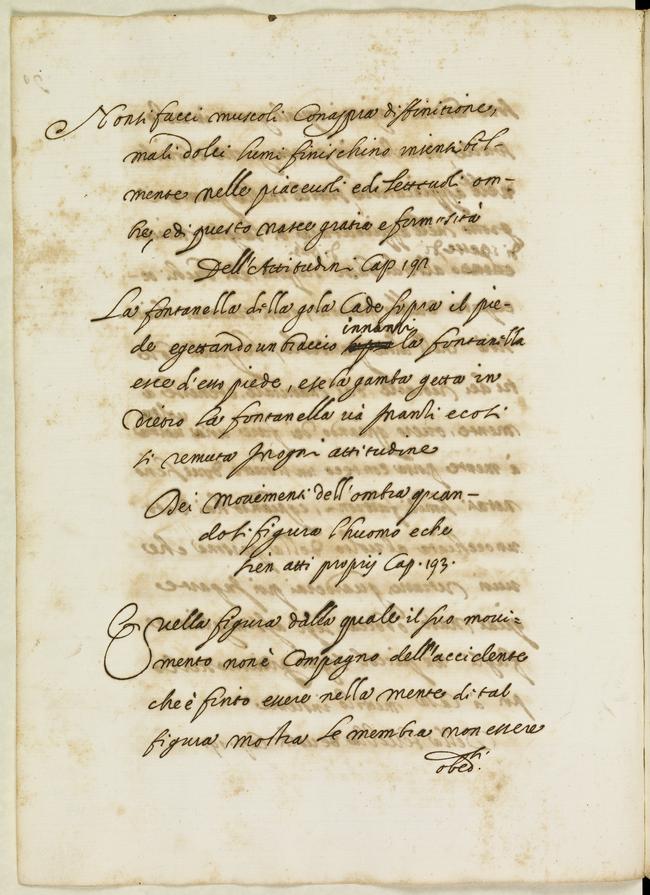 Non si facci muscoli con aspra diffinitione,
mà li dolci lumi finischino insensibil-
mente nelle piaceuoli e diletteuoli om-
bre, e di questo nasce gratia e formosità
Dell'Attitudini Cap 192
La fontanella della gola cade sopra il pie-
de egettando un braccio innanzi la fontanella
esce d'esso piede, e se la gamba getta in
dietro la fontanella uà inanzi e così
si remuta in ogni attitudine
Dei mouementi dell'ombra quan-
do si figura l'huomo e che
sien atti proprij Cap. 193.
Quella figura dalla quale il suo moui=
mento non è compagno dell'accidente
che è finto essere nella mente di tal
figura mostra le membra non essere
obedti.